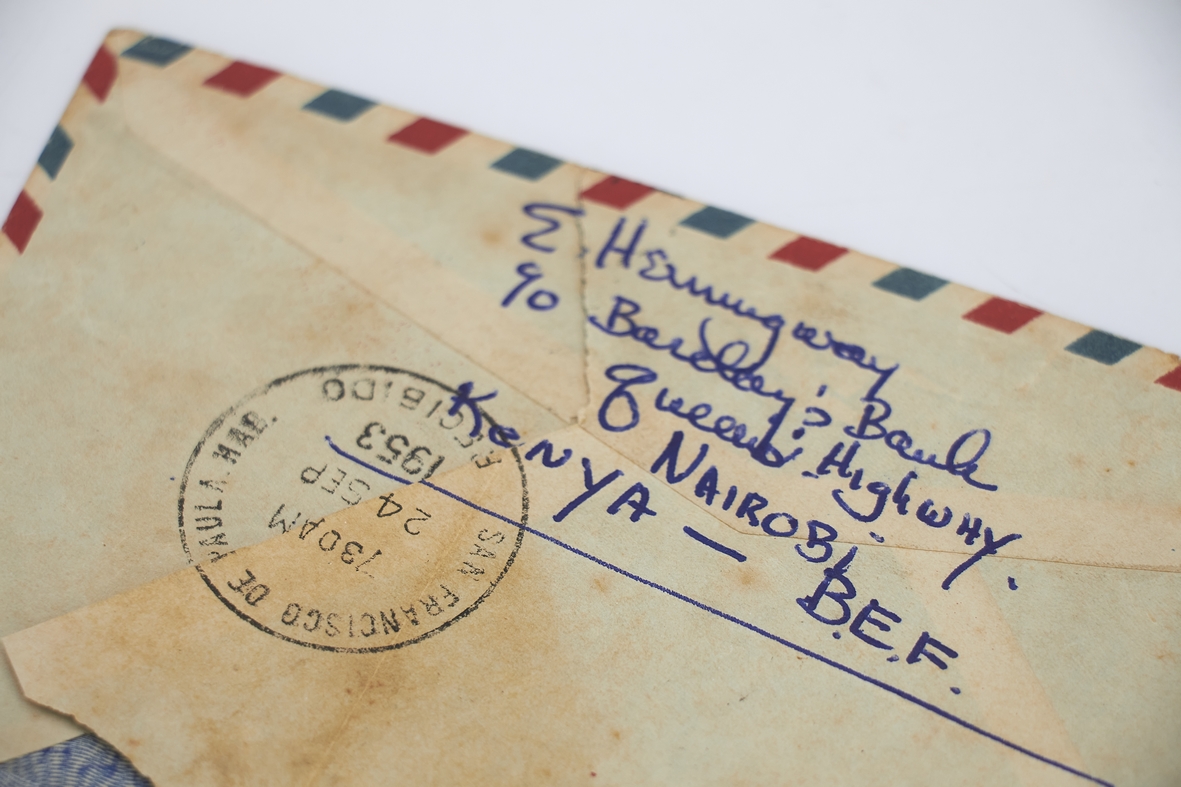 E. Hemingway
c/o Barclay's Bank
Queens Highway.
NAIROBI,
KENYA — B.E.F.
SAN FRANCISCO DE PAULA. HAB.
730AM
24 SEP
1953
RECIBIDO